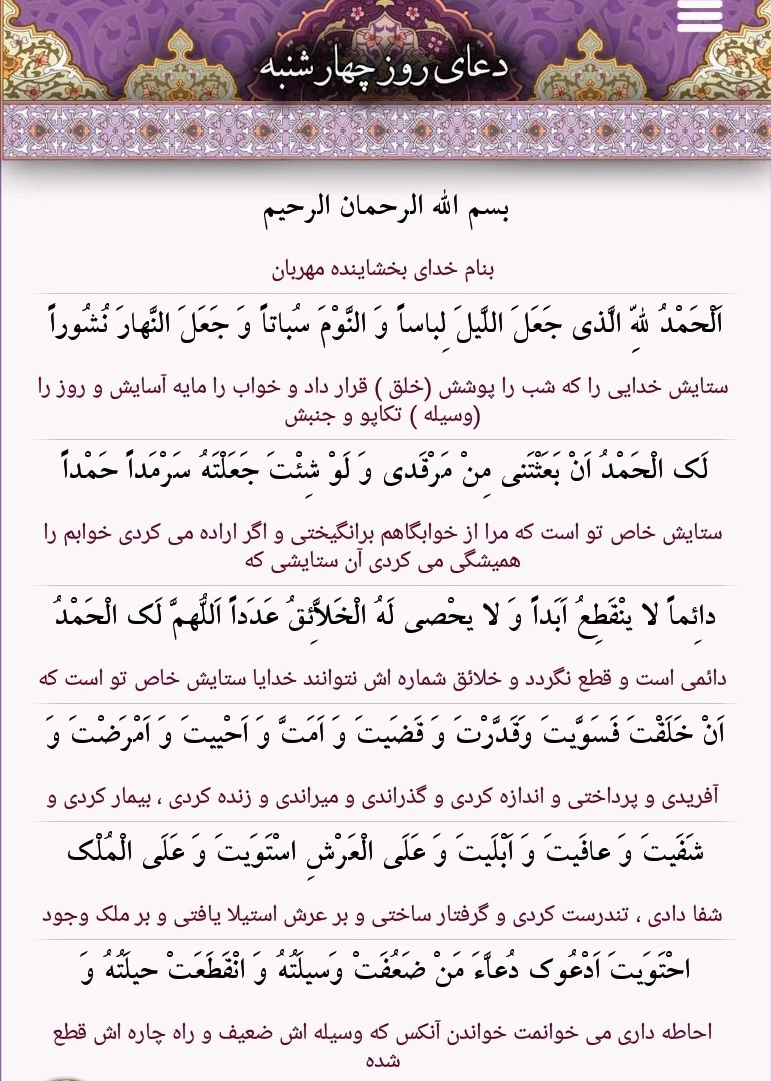 دعای روز چهارشنبه
بسم الله الرحمان الرحیم
بنام خدای بخشاینده مهربان
اَلْحَمْدُ لِلّهِ الَّذی جَعَلَ اللَّیلَ لِباساً وَ النَّوْمَ سُباتاً وَ جَعَلَ النَّهارَ نُشُوراً
ستایش خدایی را که شب را پوشش (خلق ) قرار داد و خواب را مایه آسایش و روز را
(وسیله ) تکاپو و جنبش
لَک الْحَمْدُ اَنْ بَعَثْتَنی مِنْ مَرْقَدی وَ لَوْ شِئْتَ جَعَلْتَهُ سَرْمَداً حَمْداً
ستایش خاص تو است که مرا از خوابگاهم برانگیختی و اگر اراده می کردی خوابم را
همیشگی می کردی آن ستایشی که
دائِماً لا ینْقَطِعُ اَبَداً وَ لا یحْصی لَهُ الْخَلاَّئِقُ عَدَداً اَللّهُمَّ لَک الْحَمْدُ
دائمی است و قطع نگردد و خلائق شماره اش نتوانند خدایا ستایش خاص تو است که
اَنْ خَلَقْتَ فَسَوَّیتَ وَقَدَّرْتَ وَ قَضَیتَ وَ اَمَتَّ وَ اَحْییتَ وَ اَمْرَضْتَ وَ
آفریدی و پرداختی و اندازه کردی و گذراندی و میراندی و زنده کردی ، بیمار کردی و
شَفَیتَ وَ عافَیتَ وَ اَبْلَیتَ وَ عَلَی الْعَرْشِ اسْتَوَیتَ وَ عَلَی الْمُلْک
شفا دادی ، تندرست کردی و گرفتار ساختی و بر عرش استیلا یافتی و بر ملک وجود
احْتَوَیتَ اَدْعُوک دُعاَّءَ مَنْ ضَعُفَتْ وَسیلَتُهُ وَ انْقَطَعَتْ حیلَتُهُ وَ
احاطه داری می خوانمت خواندن آنکس که وسیله اش ضعیف و راه چاره اش قطع
شده